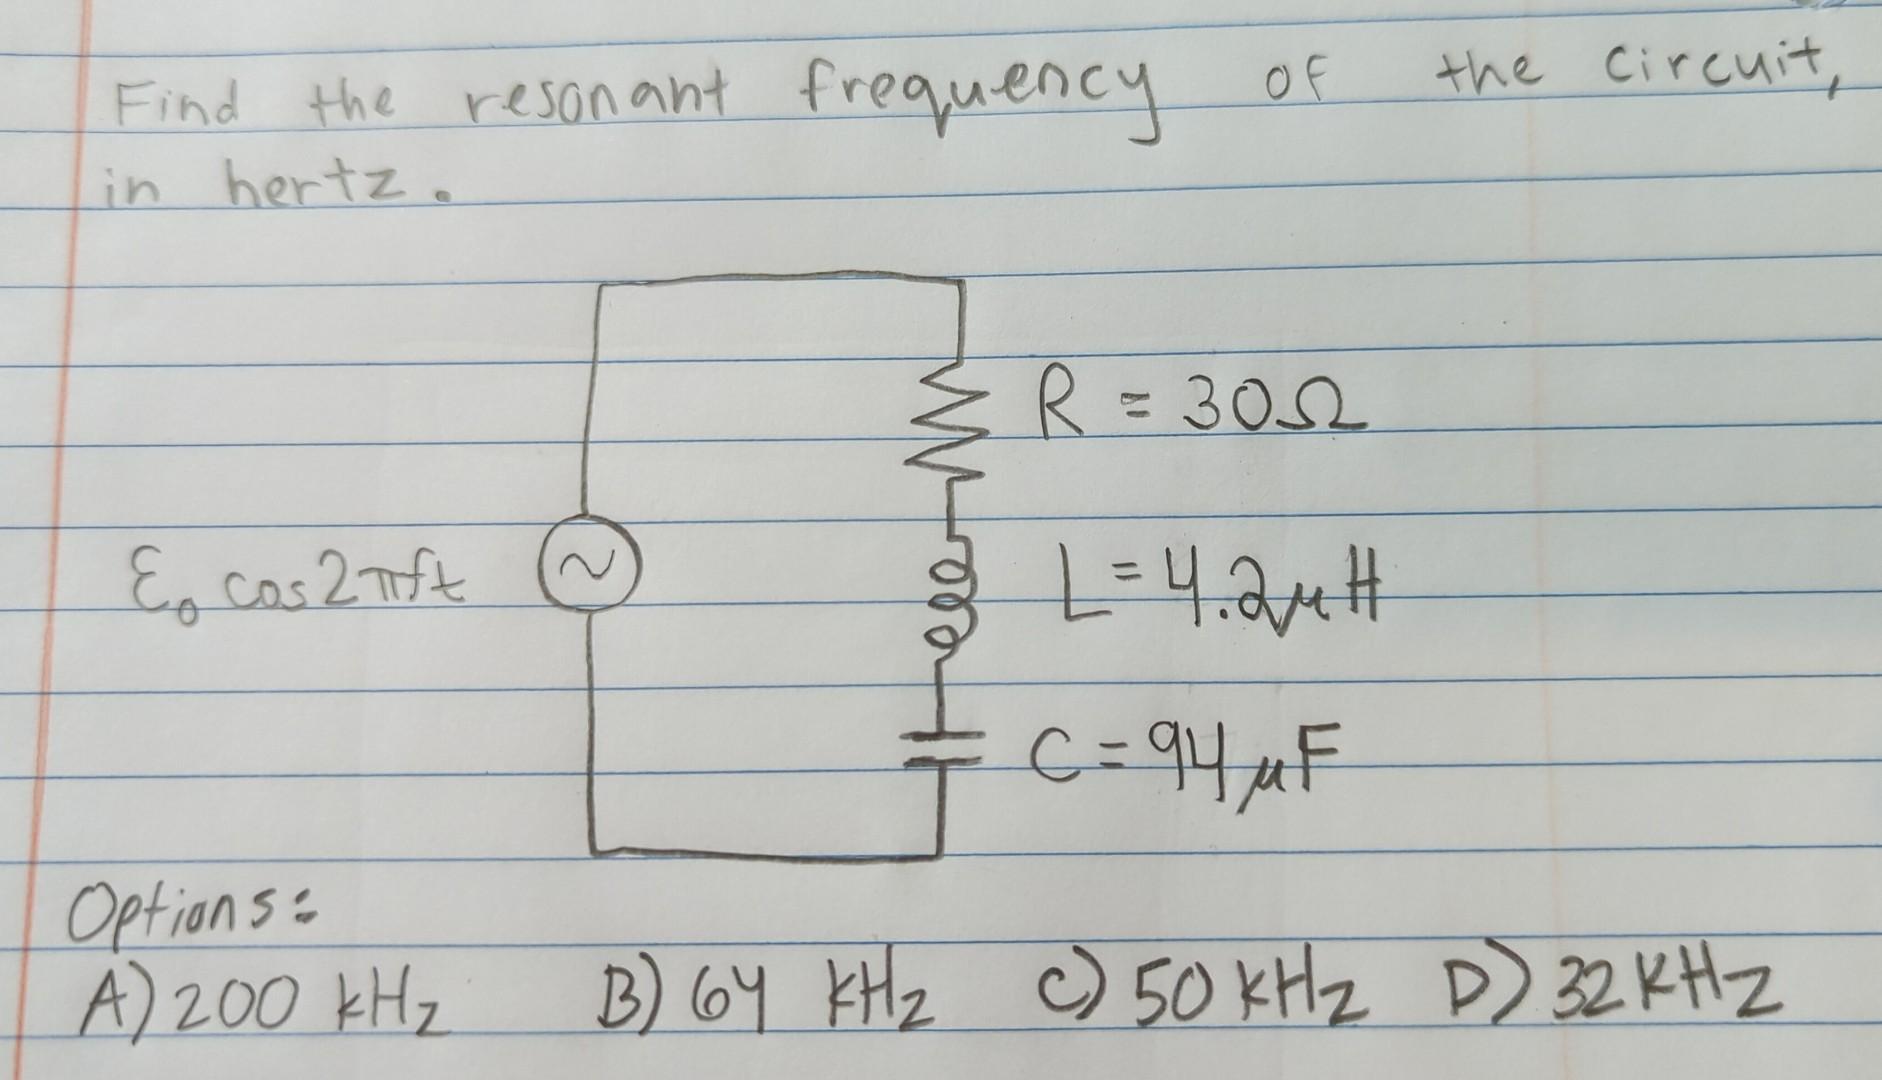 Find the resonant frequency of the circuit,
in hertz.
R = 30Ω
ε₀ cos2πft
L = 4.2μH
C = 94μF
Options:
A) 200 kHz B) 64 kHz C) 50 kHz D) 32 KHz